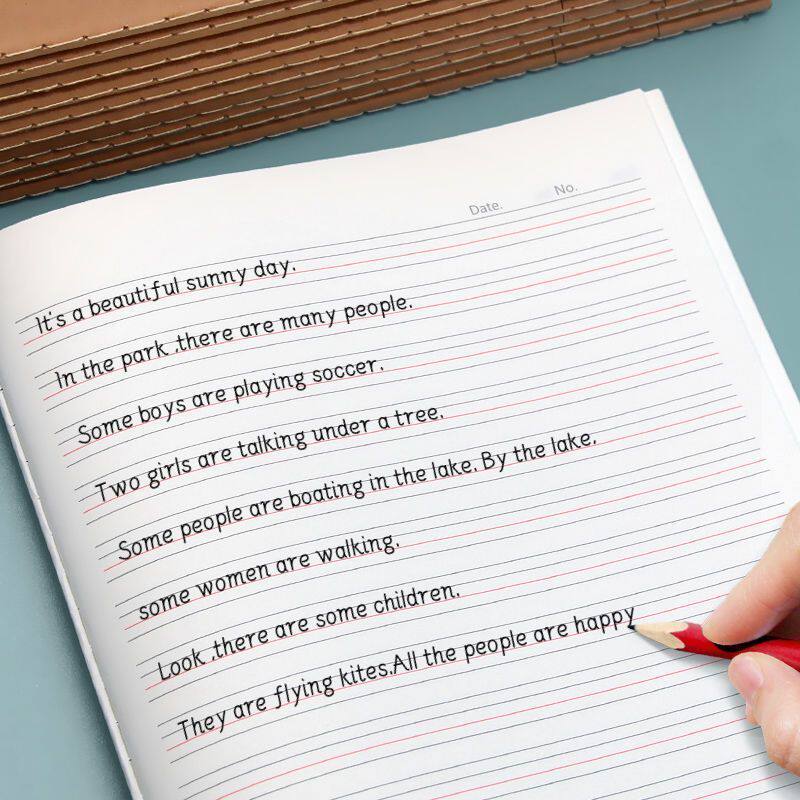 Date. No.
It's a beautiful sunny day.
In the park ,there are many people.
Some boys are playing soccer.
Two girls are talking under a tree.
Some people are boating in the lake. By the lake.
some women are walking.
Look ,there are some children.
They are flying kites.All the people are happy